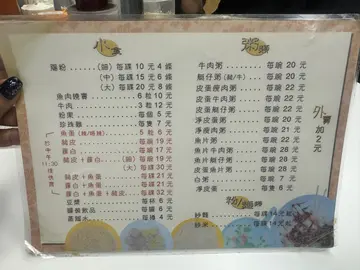 小食
腸粉 (細) 每碟 10 元 4 條
(中) 每碟 15 元 6 條
(大) 每碟 20 元 8 條
魚肉燒賣 6 粒 10 元
牛肉 3 粒 12 元
粉果 每個 5 元
珍珠雞 每隻 7 元
魚蛋 5 粒 6 元
豬皮 每碗 19 元
蘿白 每碗 17 元
豬皮+蘿白 每碗 19 元
豬皮+魚蛋 每碟 21 元
蘿白+魚蛋 每碟 21 元
蘿白+魚蛋+豬皮 每碟 22 元
豆漿 每杯 6 元
罐裝飲品 每罐 6 元
蒸餾水 每樽 4 元
粥譜
牛肉粥 每碗 20 元
艇仔粥 每碗 20 元
皮蛋瘦肉粥 每碗 22 元
皮蛋牛肉粥 每碗 22 元
皮蛋艇仔粥 每碗 22 元
淨皮蛋粥 每碗 20 元
淨瘦肉粥 每碗 21 元
魚片粥 每碗 28 元
魚片牛肉粥 每碗 28 元
魚片艇仔粥 每碗 28 元
魚片皮蛋粥 每碗 28 元
白粥 每碗 10 元
淨皮蛋 每隻 7 元
外賣加2元
粉麵譜
炒麵 每碟 14 元
炒米 每碟 14 元